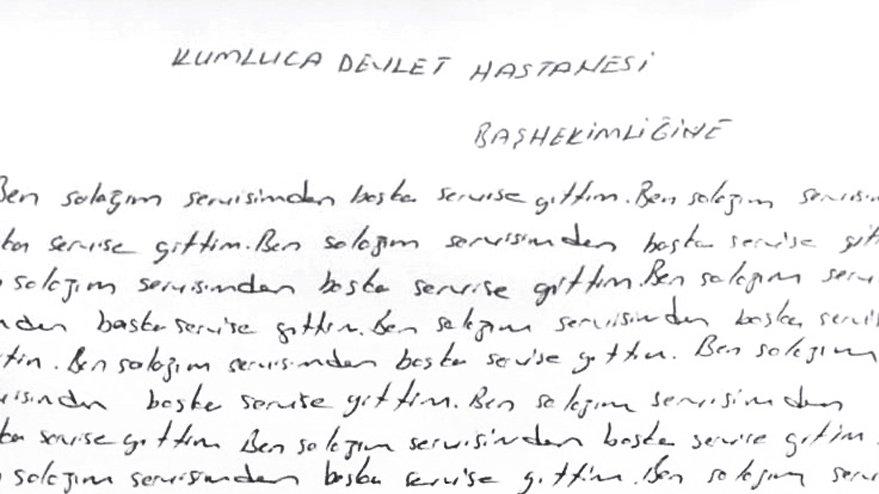 KUMLUCA DEVLET HASTANESİ
BAŞHEKİMLİĞİNE
Ben salağım servisimden başka servise gittim. Ben salağım servisim
ka servise gittim. Ben salağım servisimden başka servise gitt
salağım servisimden başka servise gittim. Ben salağım servi
nden başka servise gittim. Ben salağım servisimden başka servis
ttim. Ben salağım servisimden başka servise gittim. Ben salağım
visimden başka servise gittim. Ben salağım servisimden
ka servise gittim Ben salağım servisimden başka servise gittim.
salağım servisimden başka servise gittim. Ben salağım servisim